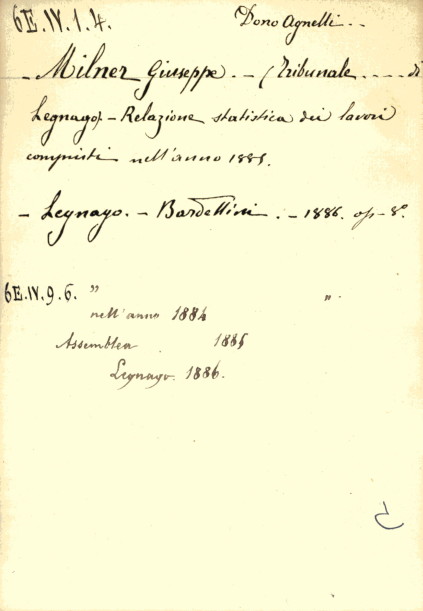 6E.IV.1.4. Dono Agnelli - -
- Milner Giuseppe. - (Tribunale - - - di
Legnago). - Relazione statistica dei lavori
compiuti nell'anno 1885.
- Legnago. - Bardellini. - 1886. op - 8°.
6E.IV.9.6. " "
nell'anno 1884
Assemblea 1885
Legnago. 1886.